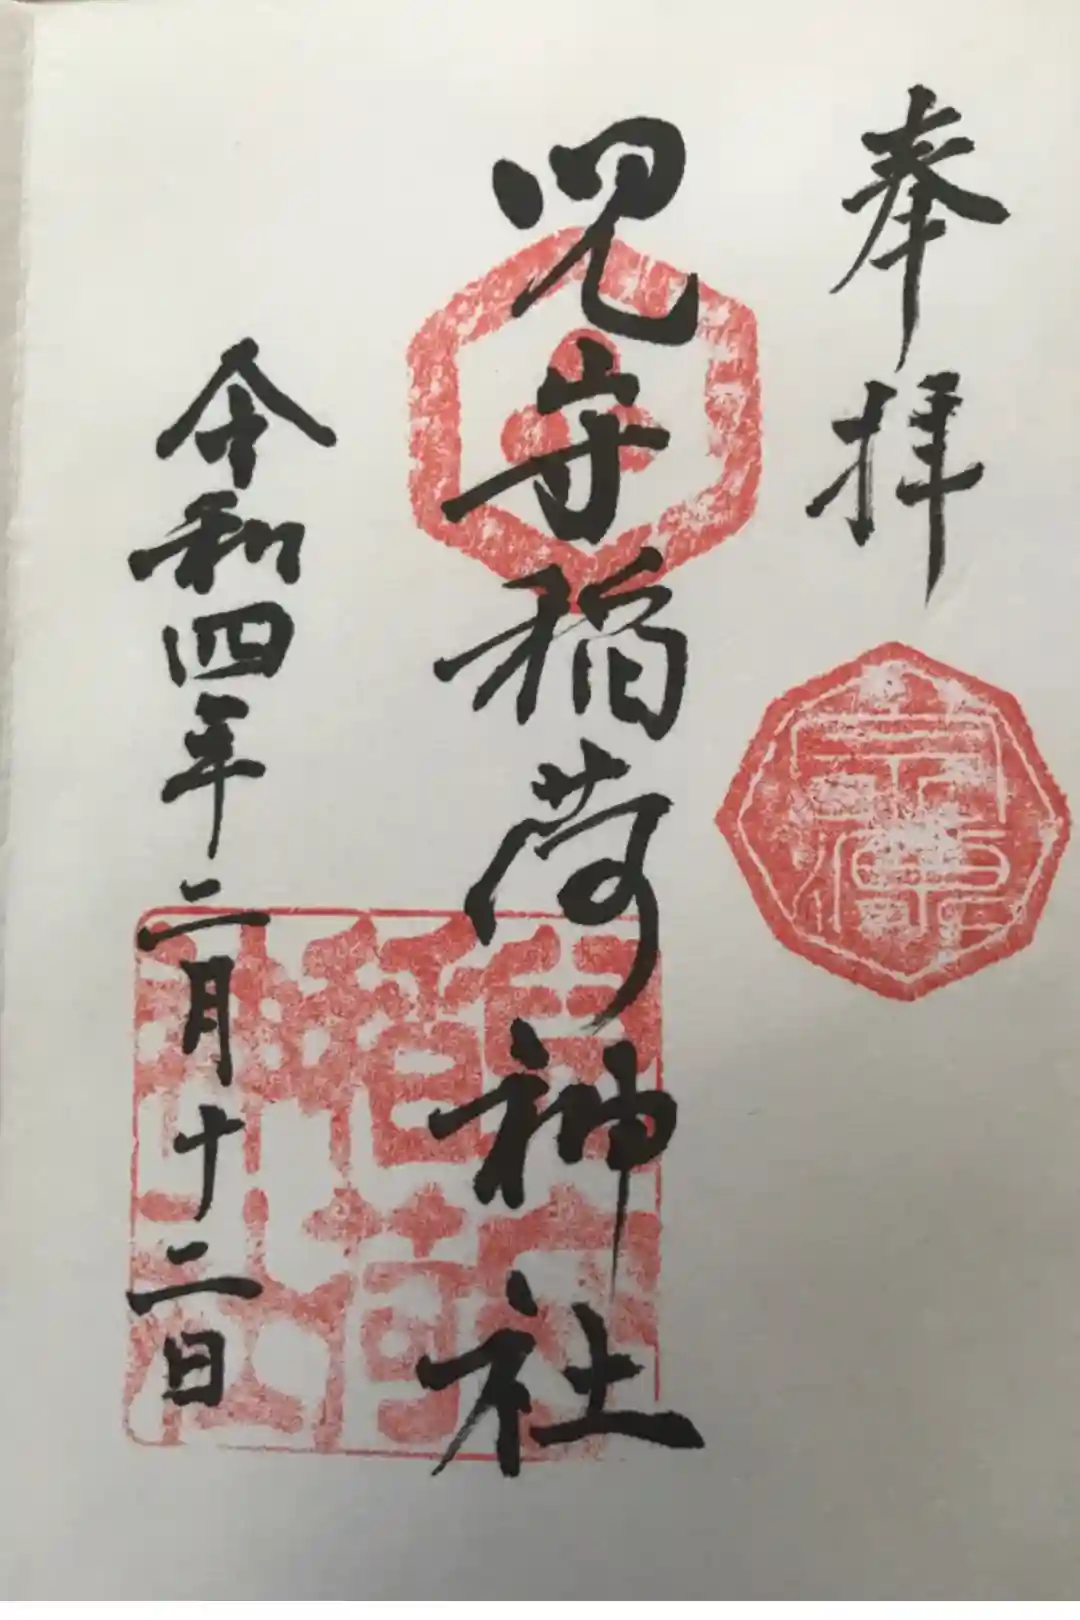 奉拝
児守稲荷神社
令和四年二月十二日
稲荷
神社